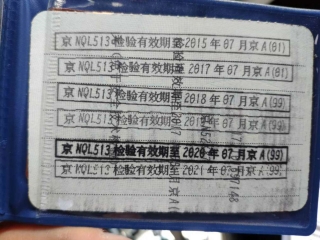 京NQL513检验有效期至2015年07月京A(01)
京NQL513检验有效期至2017年07月京A(01)
京NQL513检验有效期至2018年07月京A(99)
京NQL513检验有效期至2019年07月京A(99)
京NQL513检验有效期至2020年07月京A(99)
京NQL513检验有效期至2021年07月京A(99)